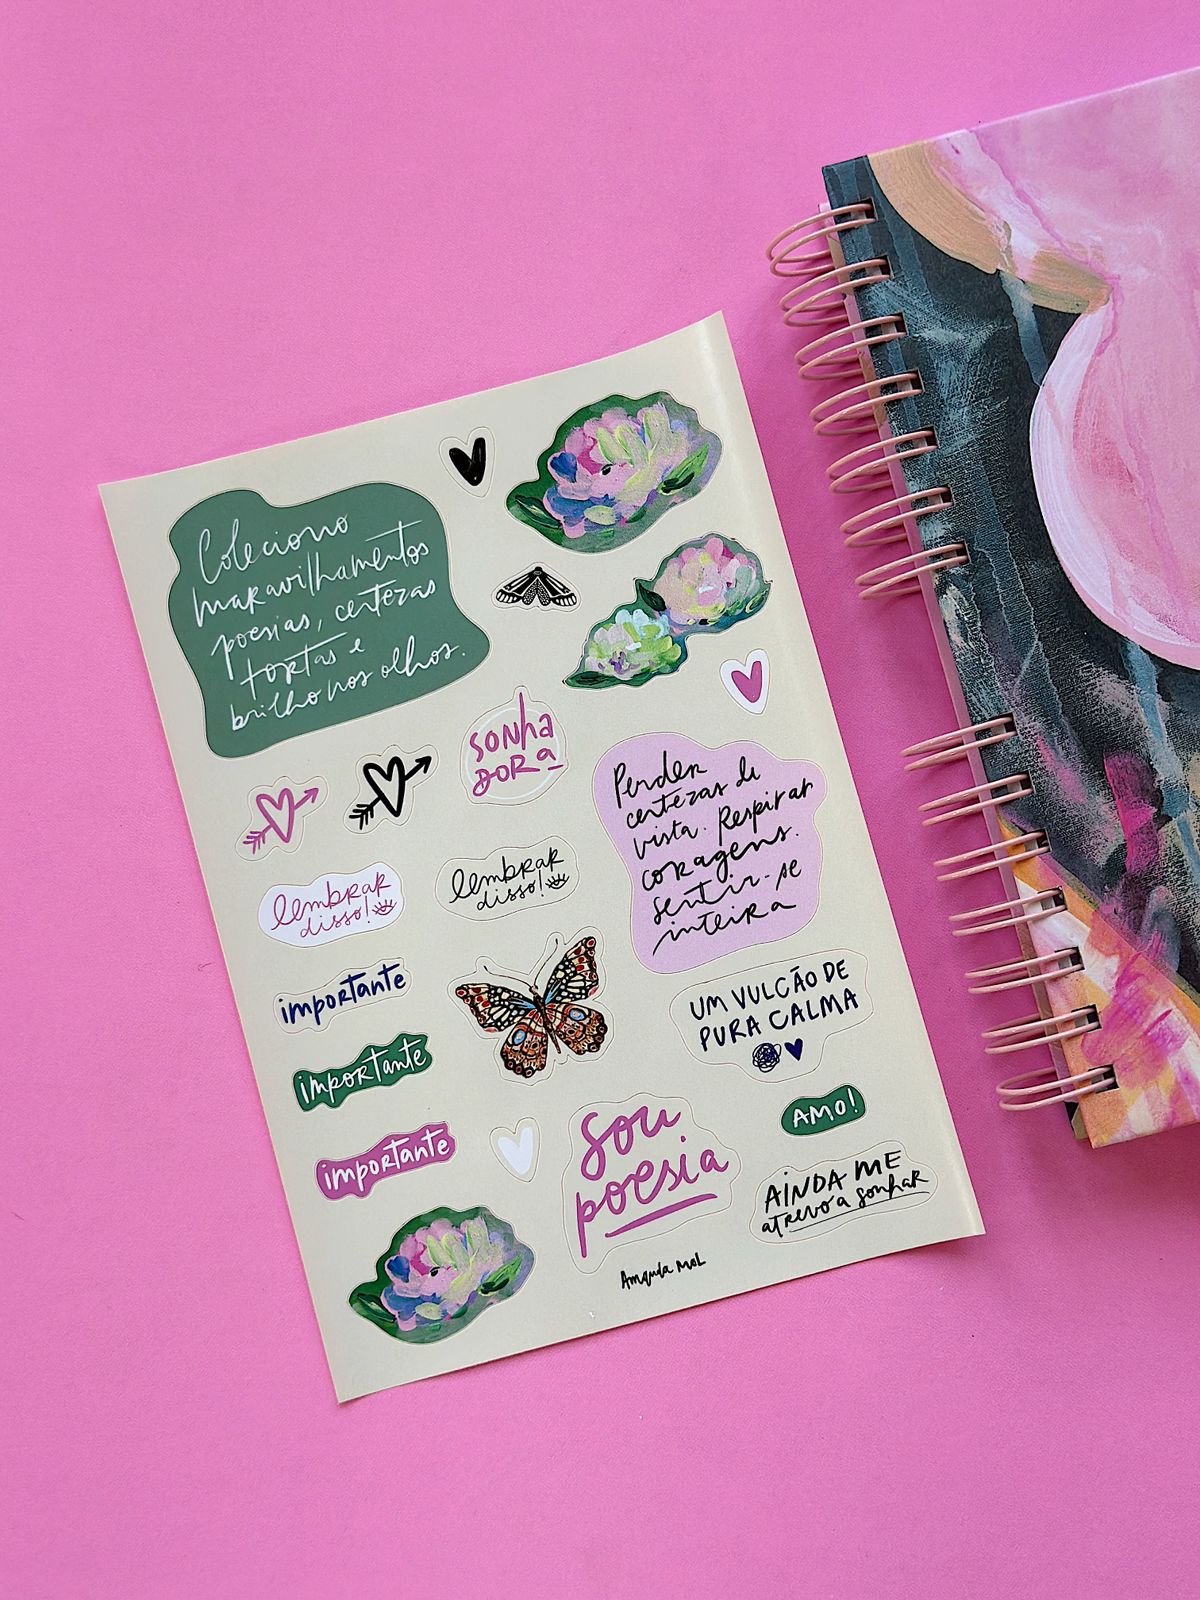 Coleciono
maravilhamentos
poesias, certezas
tortas e
brilho nos olhos.
sonha
DORA
Perder
certezas de
vista. Respirar
coragens.
sentir-se
inteira
lembrar
disso!
lembrar
disso!
importante
importante
importante
UM VULCÃO DE
PURA CALMA
AMO!
Sou
poesia
AINDA ME
atrevo a sonhar
Amanda Mol